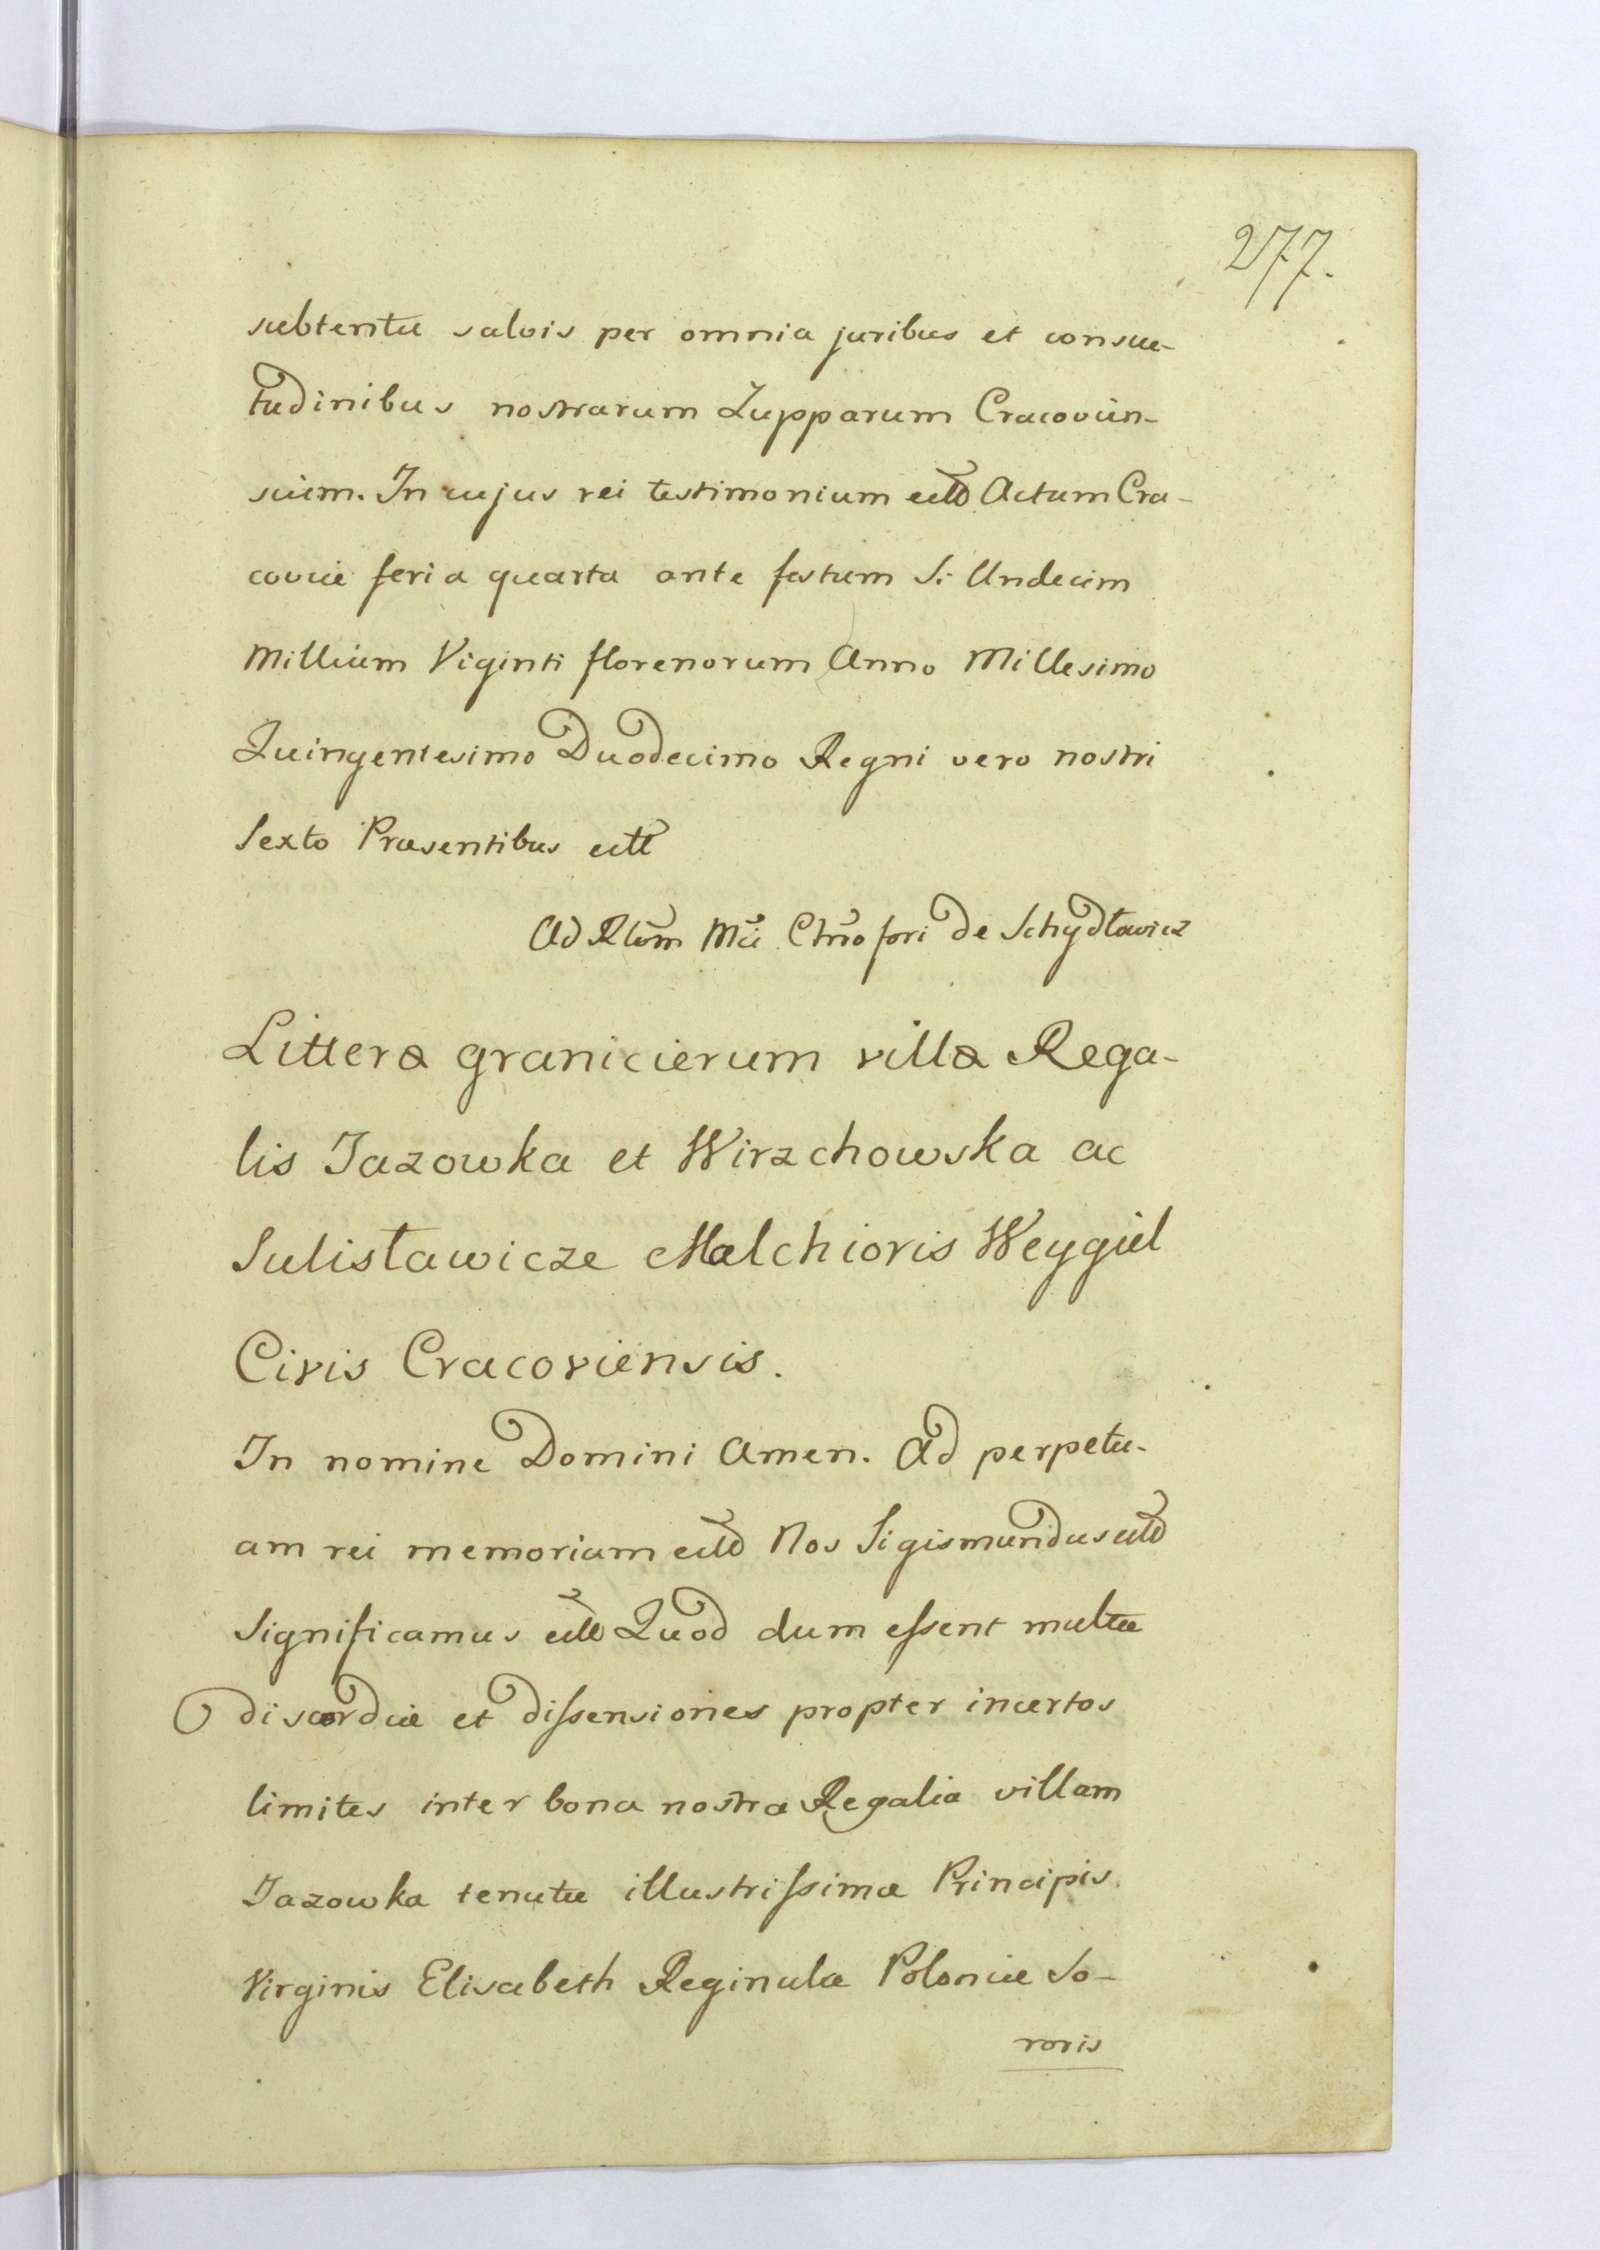 277.
subtentu salvis per omnia juribus et consue-
tudinibus nostrarum Zupparum Cracovien-
sium. In cujus rei testimonium Actum Cra-
coviæ feria quarta ante festum S. Undecim
Millium Viginti florenorum Anno Millesimo
Quingentesimo Duodecimo Regni vero nostri
Sexto Præsentibus
Ad Rlom Mci Chrofori de Schydłowicz
Litteræ granicierum villæ Rega-
lis Jazowka et Wirzchowska ac
Sulisławicze Malchioris Weygiel
Civis Cracoviensis.
In nomine Domini Amen. Ad perpetu-
am rei memoriam Nos Sigismundus
Significamus Quod dum essent multæ
discordiæ et dissensiones propter incertos
limites inter bona nostra Regalia villam
Jazowka tenutæ illustrissimæ Principis
Virginis Elisabeth Reginulæ Poloniæ So-
roris